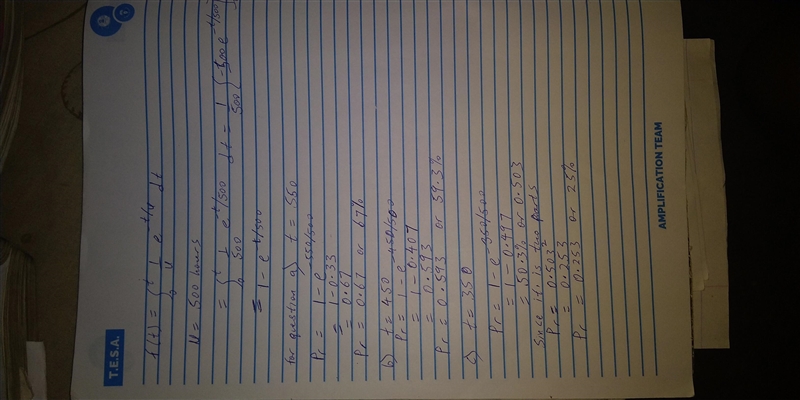 T.E.S.A.
f(t) = ∫₀ᵗ 1/u e^-t/u dt
U = 500 hours
= ∫₀ᵗ 1/500 e^-t/500 dt = 1/500 [-500 e^-t/500
= 1 - e^-t/500
for question a) t = 550
Pr = 1 - e^-550/500
= 1 - 0.33
= 0.67
Pr = 0.67 or 67%
b) t = 450
Pr = 1 - e^-450/500
= 1 - 0.407
= 0.593
Pr = 0.593 or 59.3%
c) t = 350
Pr = 1 - e^-350/500
= 1 - 0.497
= 50.3% or 0.503
Since it is two parts
Pr = 0.503²
= 0.253
Pr = 0.253 or 25%
AMPLIFICATION TEAM